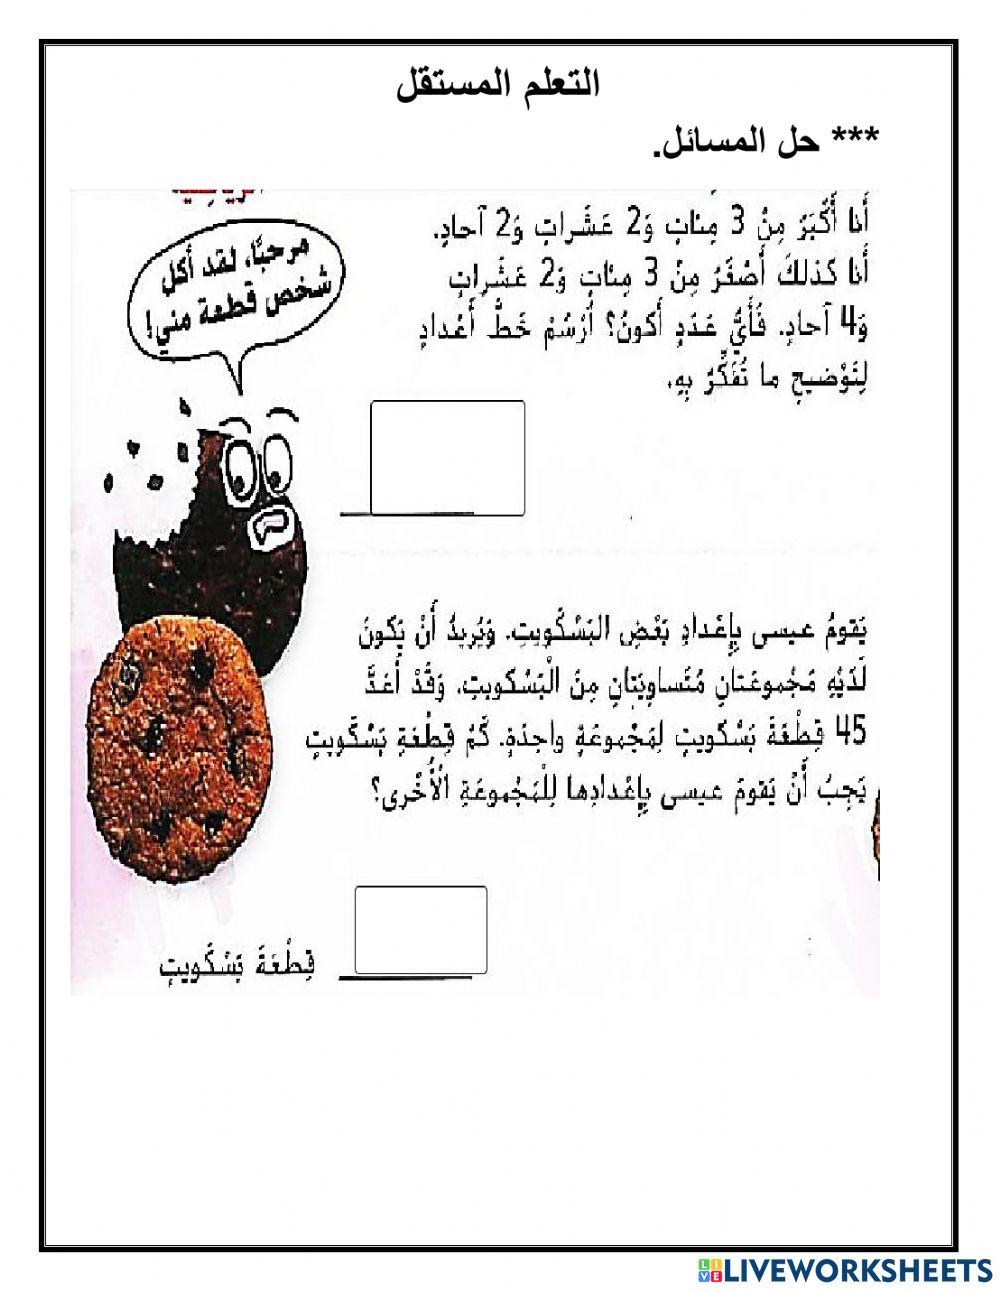 التعلم المستقل
*** حل المسائل.
أَنا أَكْبَرُ مِنْ 3 مِئاتٍ وَ2 عَشَراتٍ وَ2 آحادٍ.
أَنا كَذلِكَ أَصْغَرُ مِنْ 3 مِئاتٍ وَ2 عَشَراتٍ
وَ4 آحادٍ. فَأَيُّ عَدَدٍ أَكونُ؟ أَرْسُمُ خَطَّ أَعْدادٍ
لِتَوْضيحِ ما تُفَكِّرُ بِهِ.
مرحبًا، لقد أكل
شخص قطعة مني!
يَقومُ عيسى بِإِعْدادِ بَعْضِ البَسْكَويتِ. وَيُريدُ أَنْ يَكونَ
لَدَيْهِ مَجْموعَتانِ مُتَساوِيَتانِ مِنَ الْبَسْكَويتِ. وَقَدْ أَعَدَّ
45 قِطْعَةَ بَسْكَويتٍ لِمَجْموعَةٍ واحِدَةٍ. كَمْ قِطْعَةِ بَسْكَويتٍ
يَجِبُ أَنْ يَقومَ عيسى بِإِعْدادِها لِلْمَجْموعَةِ الْأُخْرى؟
قِطْعَةَ بَسْكَويتٍ
LIVEWORKSHEETS